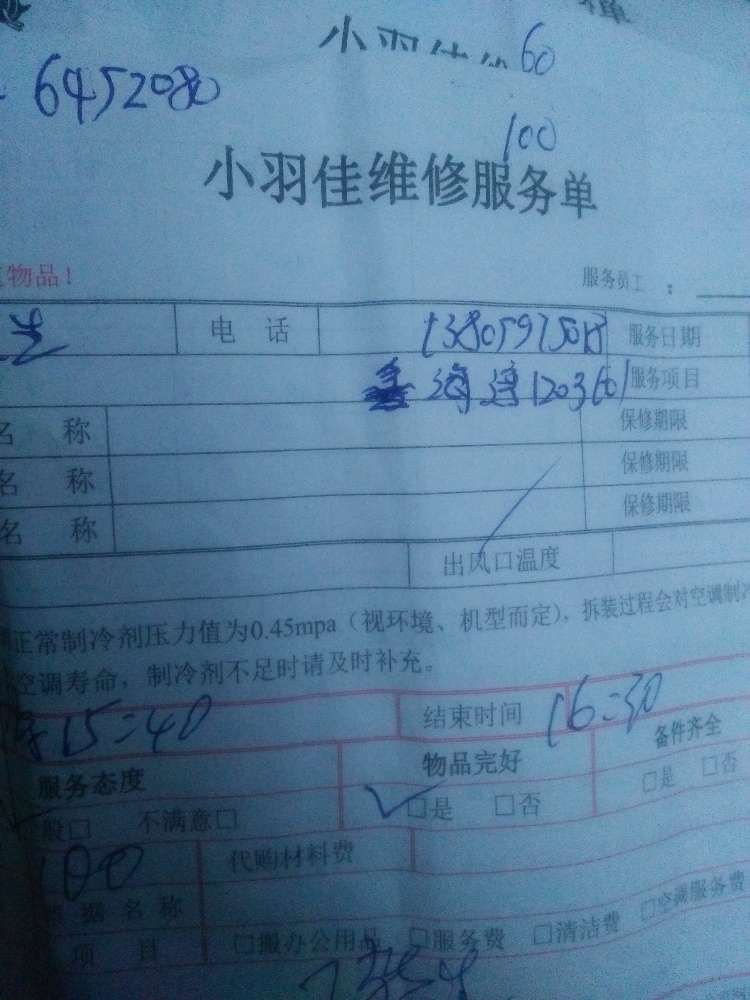 小羽佳 60
6452080
100
小羽佳维修服务单
物品！ 服务员工：
电 话 服务日期
120360 服务项目
名 称 保修期限
名 称 保修期限
名 称 保修期限
出风口温度
正常制冷剂压力值为0.45mpa（视环境、机型而定），拆装过程会对空调制冷
空调寿命，制冷剂不足时请及时补充。
15:40 结束时间 16:30
服务态度 物品完好 备件齐全
般□ 不满意□ ✓□是 □否 □是 □否
100 代购材料费
据名称
项 目 □搬办公用品 □服务费 □清洁费 □空调服务费